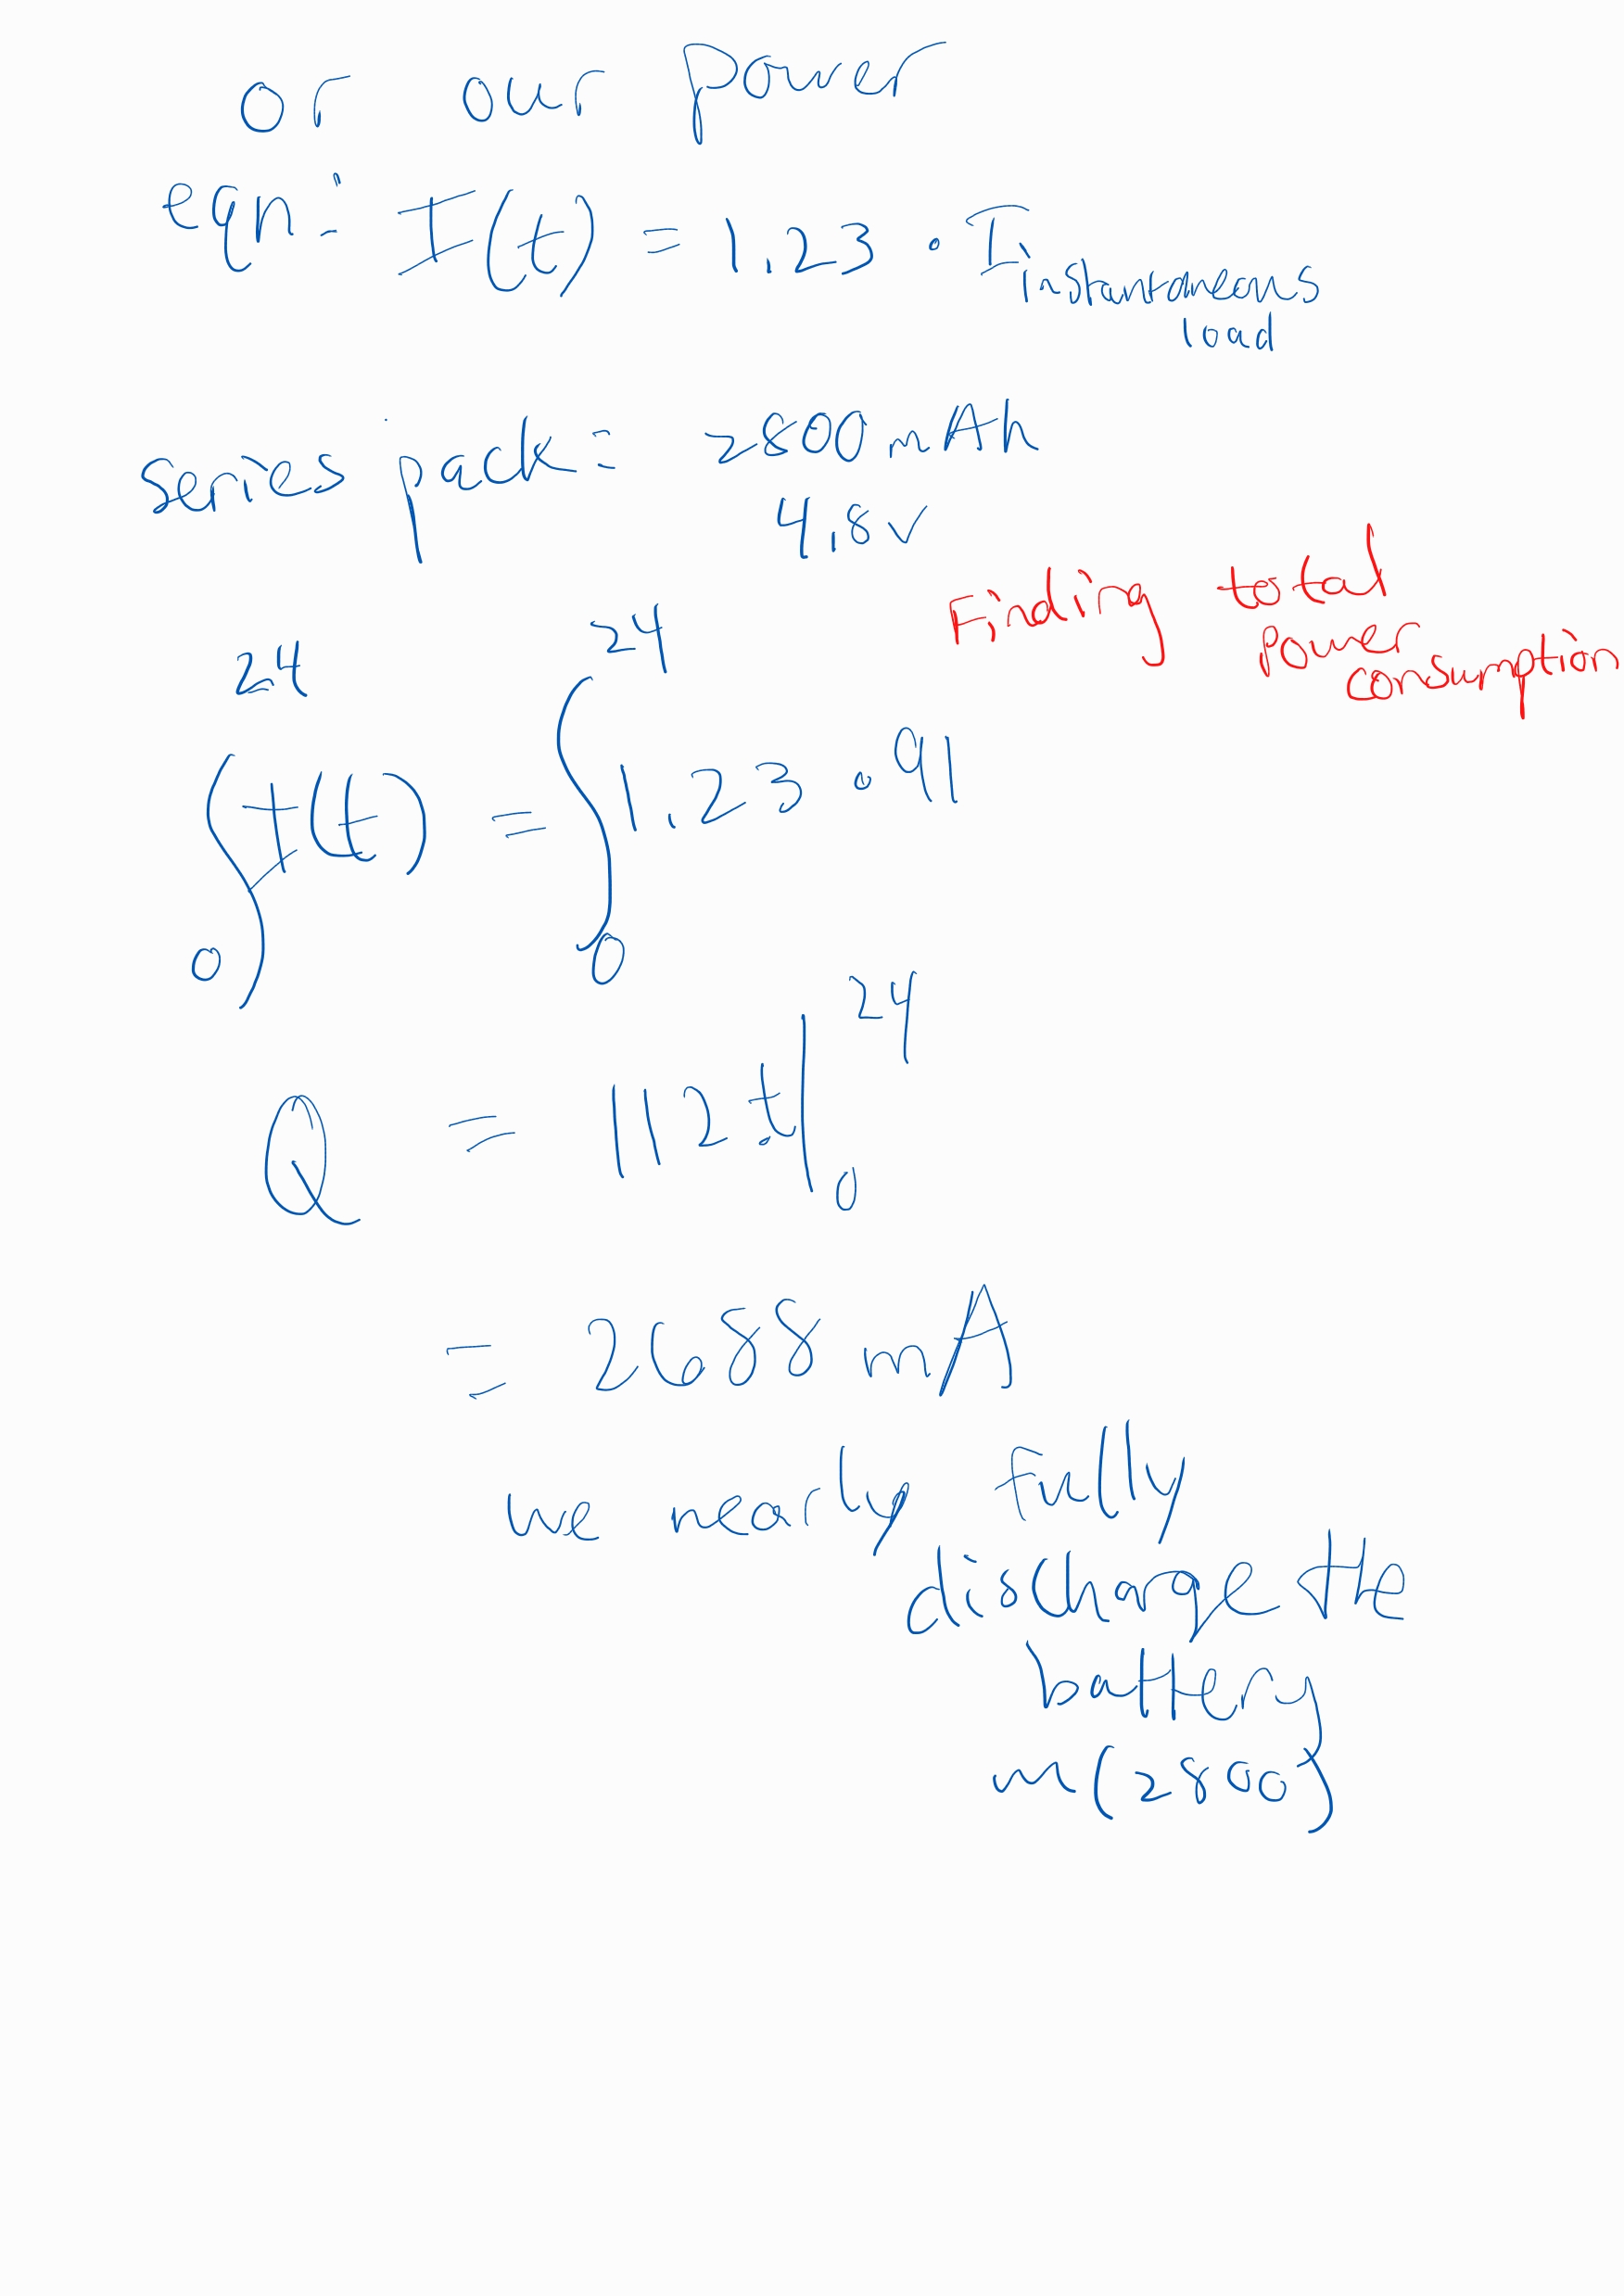 or our power
eqn: I(t) = 1.23 · I instantaneous
load
series pack = 2800 mAh
4.8v
Finding total
power
consumption
24 24
∫ I(t) = ∫ 1.23 · 91
0 0
24
Q = 112 t|
0
= 2688 mA
we nearly fully
discharge the
battery
(2800)